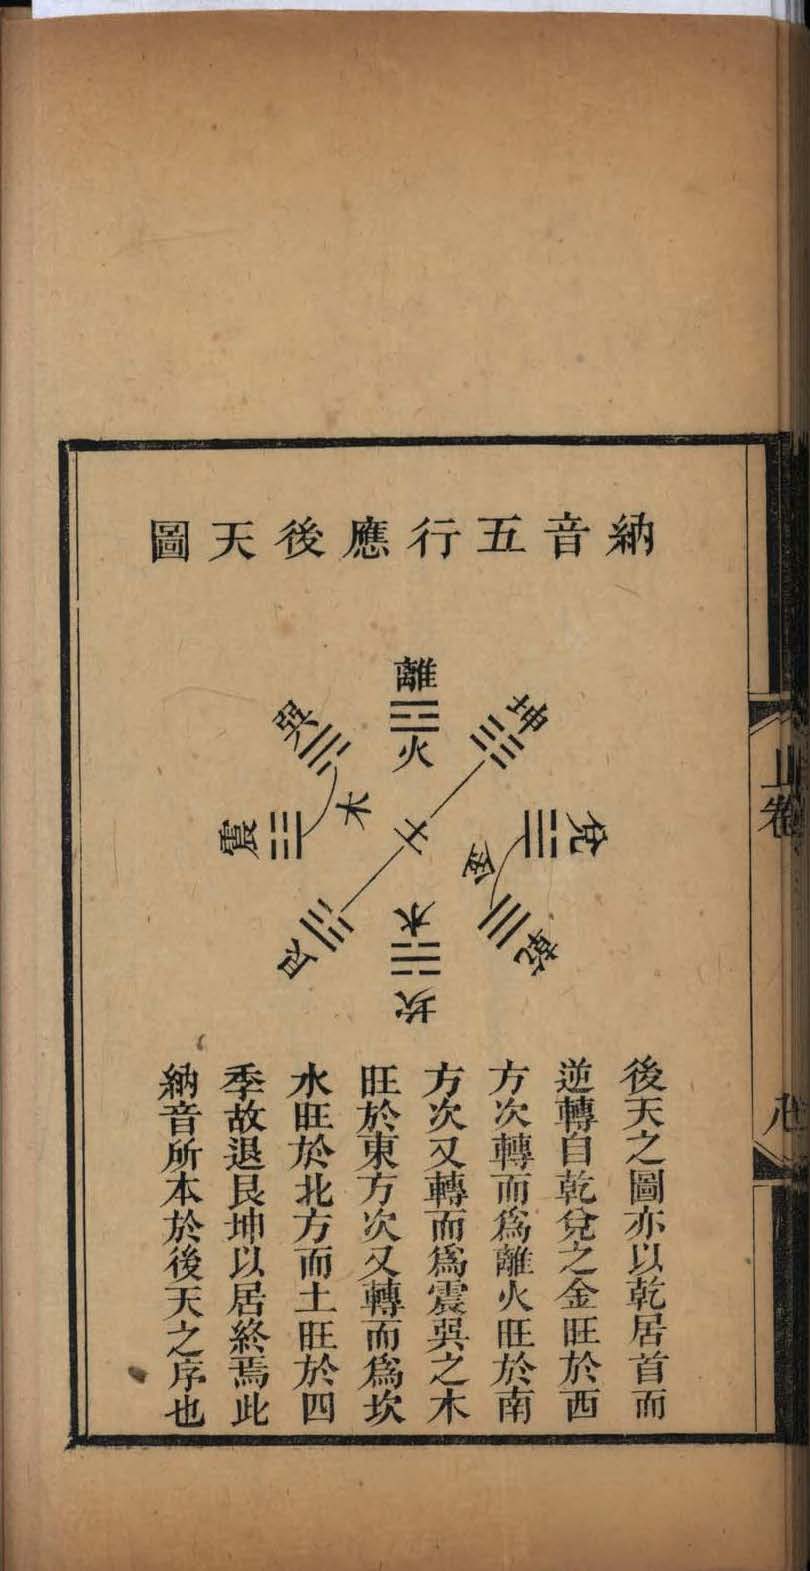 納音五行應後天圖
離
火
坤
兌
金
乾
水
坎
艮
震
巽
木
後天之圖亦以乾居首而
逆轉自乾兌之金旺於西
方次轉而爲離火旺於南
方次又轉而爲震巽之木
旺於東方次又轉而爲坎
水旺於北方而土旺於四
季故退艮坤以居終焉此
納音所本於後天之序也